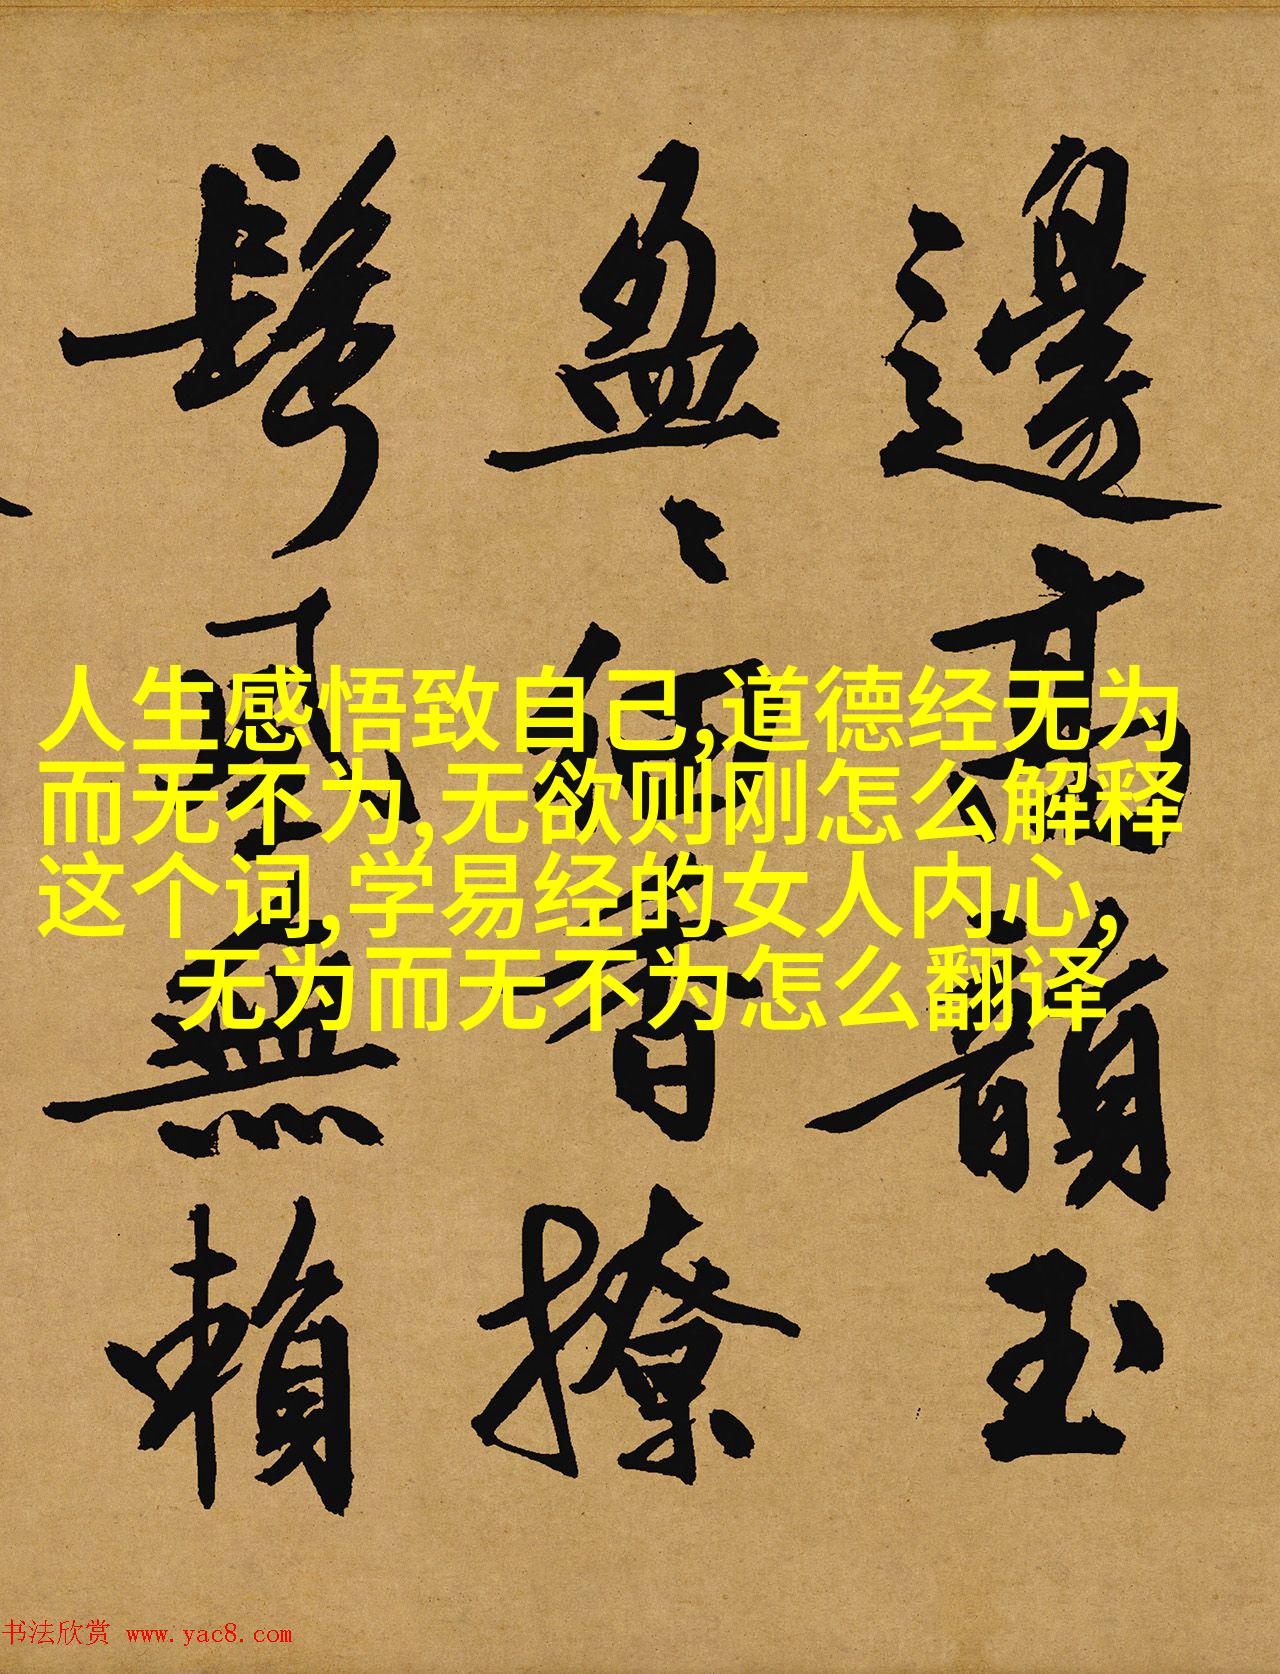 邊高韻玉
盈々何香撩
鬓風無賴
人生感悟致自己,道德经无为
而无不为,无欲则刚怎么解释
这个词,学易经的女人内心,
无为而无不为怎么翻译
书法欣赏 www.yac8.com